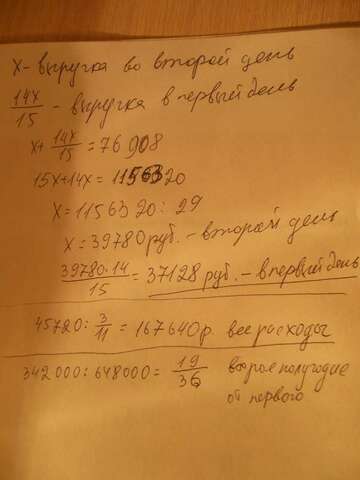 х- выручка во второй день
14х/15 - выручка в первый день
х+ 14х/15 = 76 908
15х+14х = 1156320
х = 1156320 : 29
х = 39780 руб. - второй день
39780·14/15 = 37128 руб. - в первый день
45720 : 3/11 = 167640 р. все расходы
342000 : 648000 = 19/36 второе полугодие
от первого